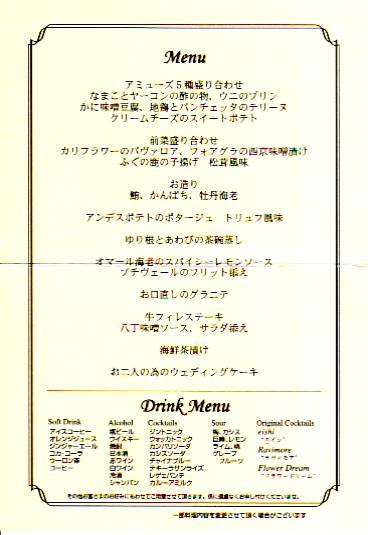 Menu
アミューズ5種盛り合わせ
なまことヤーコンの酢の物、ウニのプリン
かに味噌豆腐、地鶏とパンチェッタのテリーヌ
クリームチーズのスイートポテト
前菜盛り合わせ
カリフラワーのババァロア、フォアグラの西京味噌漬け
ふぐの鹿の子揚げ 松茸風味
お造り
鮪、かんぱち、牡丹海老
アンデスポテトのポタージュ トリュフ風味
ゆり根とあわびの茶碗蒸し
オマール海老のスパイシーレモンソース
プチヴェールのフリット添え
お口直しのグラニテ
牛フィレステーキ
八丁味噌ソース、サラダ添え
海鮮茶漬け
お二人の為のウェディングケーキ
Drink Menu
Soft Drink Alcohol Cocktails Sour Original Cocktails
アイスコーヒー 瓶ビール ジントニック 梅、カシス eishi
オレンジジュース ウイスキー ウォッカトニック 巨峰、レモン "エイシ"
ジンジャーエール 焼酎 カンパリソーダ ライム、桃 Ravimore
コカ・コーラ 日本酒 カシスソーダ グレープ
ウーロン茶 赤ワイン チャイナブルー フルーツ Flower Dream
コーヒー 白ワイン テキーラサンライズ "フラワードリーム"
レゲェパンチ
シャンパン カルーアミルク
その他お客さまのお好みにあわせてご用意させて頂きます。係に遠慮なくお申し付けくださいませ。
一部料理内容を変更させて頂く場合がございます